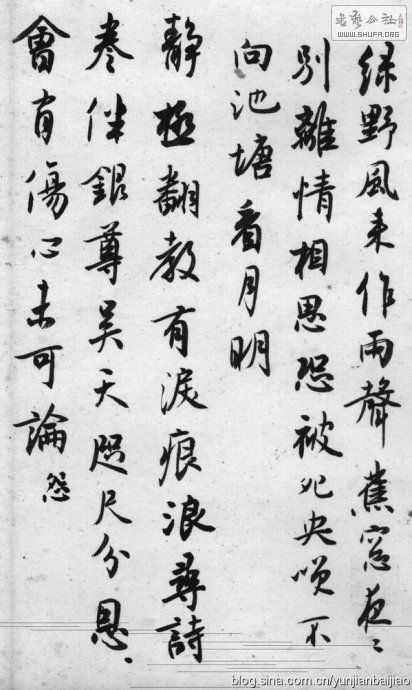 書藝公社
WWW.SHUFA.ORG
緑野風来作雨聲蕉窓夜〻
別離情相思恐被夗央咲不
向池塘看月明
靜極翻教有淚痕浪尋詩
卷伴銀尊吴天咫尺分恩、
會有傷心未可論怨
blog.sina.com.cn/yunjianbaijiao